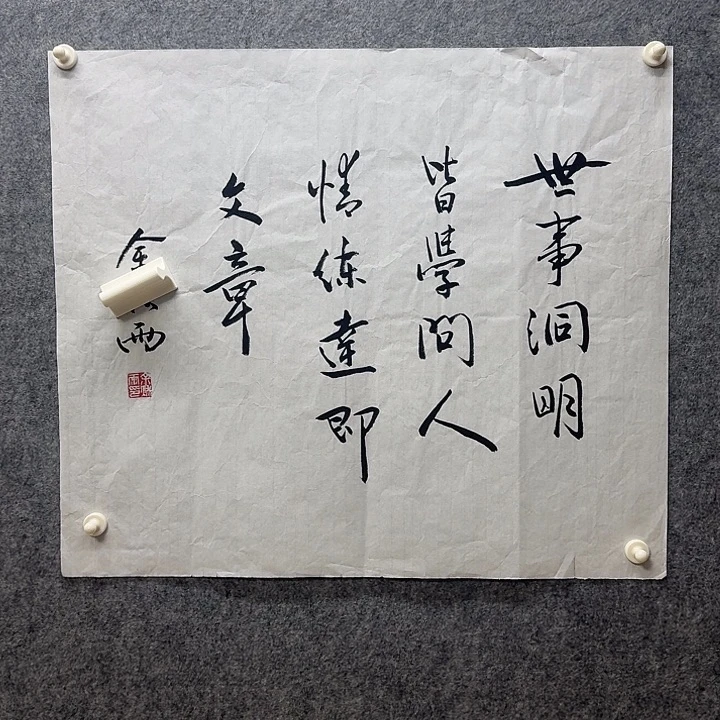 世事洞明
皆學問人
情練達即
文章
余 雨